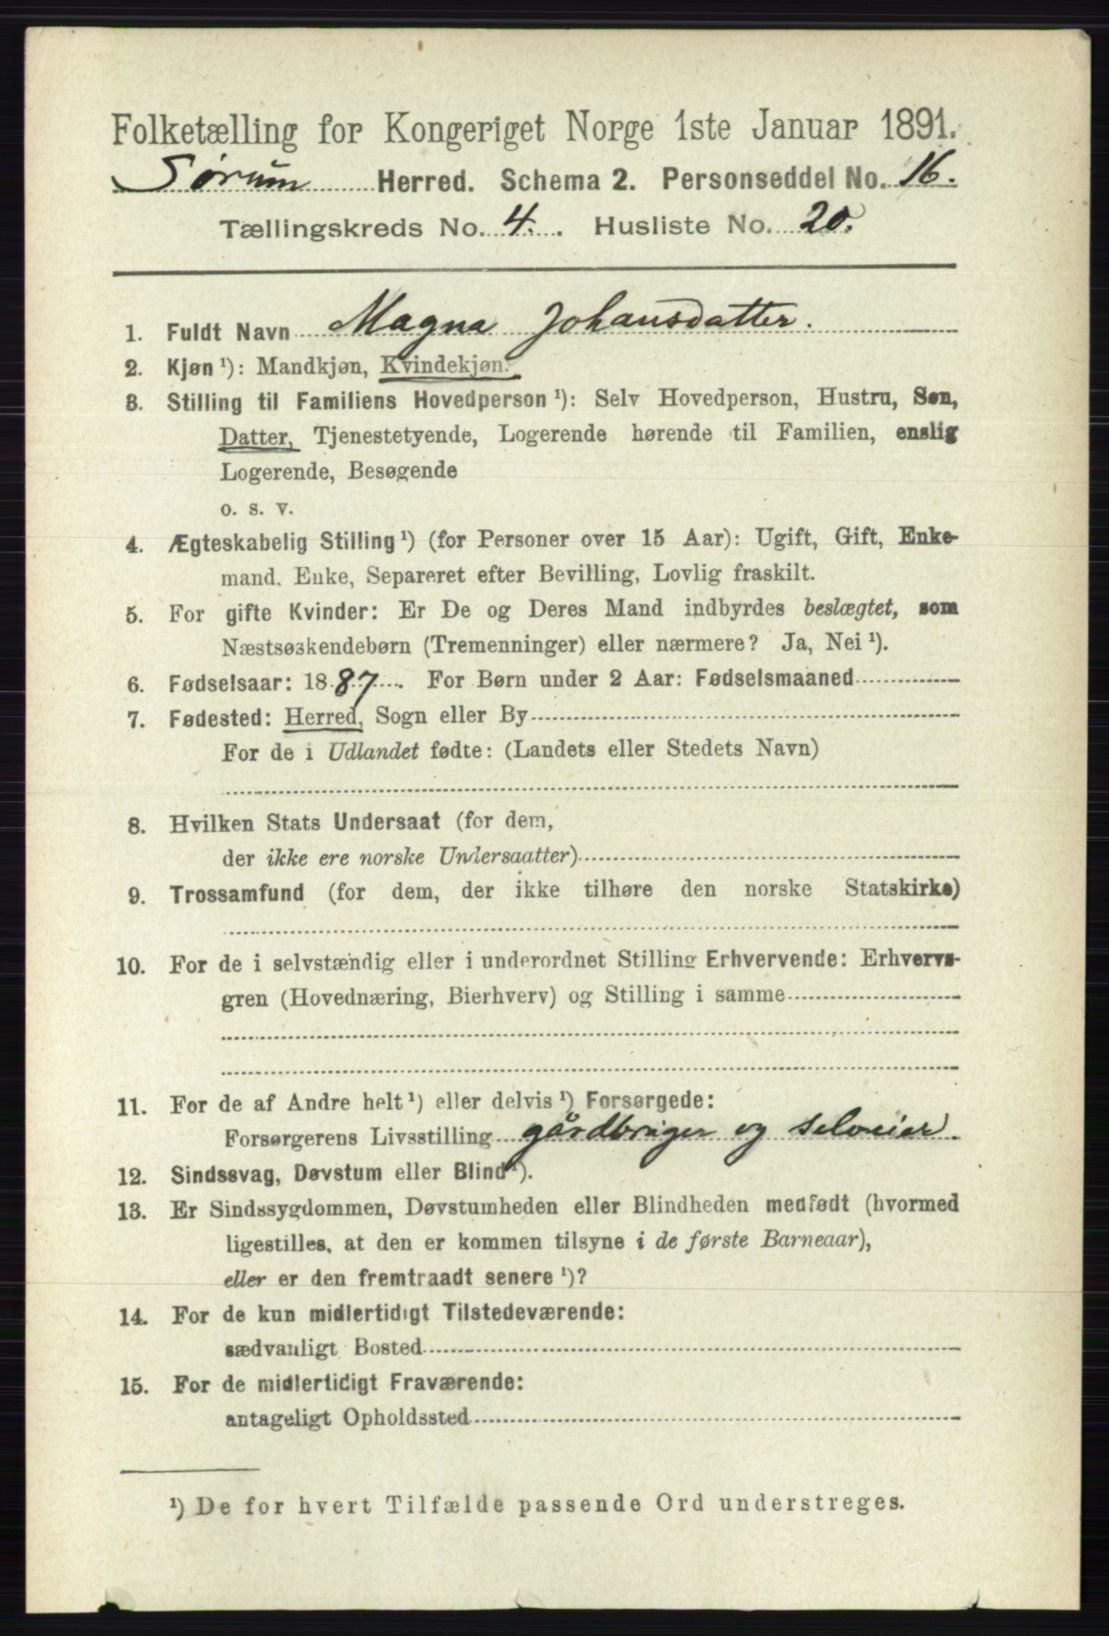 Folketælling for Kongeriget Norge 1ste Januar 1891.
Sørum Herred. Schema 2. Personseddel No. 16.
Tællingskreds No. 4. Husliste No. 20.
1. Fuldt Navn Magna Johansdatter.
2. Kjøn ¹): Mandkjøn, Kvindekjøn.
3. Stilling til Familiens Hovedperson ¹): Selv Hovedperson, Hustru, Søn,
Datter, Tjenestetyende, Logerende hørende til Familien, enslig
Logerende, Besøgende
o. s. v.
4. Ægteskabelig Stilling ¹) (for Personer over 15 Aar): Ugift, Gift, Enke-
mand, Enke, Separeret efter Bevilling, Lovlig fraskilt.
5. For gifte Kvinder: Er De og Deres Mand indbyrdes beslægtet, som
Næstsøskendebørn (Tremenninger) eller nærmere? Ja, Nei ¹).
6. Fødselsaar: 1887. For Børn under 2 Aar: Fødselsmaaned
7. Fødested: Herred, Sogn eller By
For de i Udlandet fødte: (Landets eller Stedets Navn)
8. Hvilken Stats Undersaat (for dem,
der ikke ere norske Undersaatter)
9. Trossamfund (for dem, der ikke tilhøre den norske Statskirke)
10. For de i selvstændig eller i underordnet Stilling Erhvervende: Erhvervs-
gren (Hovednæring, Bierhverv) og Stilling i samme
11. For de af Andre helt ¹) eller delvis ¹) Forsørgede:
Forsørgerens Livsstilling gårdbruger og selveier.
12. Sindssvag, Døvstum eller Blind ¹).
13. Er Sindssygdommen, Døvstumheden eller Blindheden medfødt (hvormed
ligestilles, at den er kommen tilsyne i de første Barneaar),
eller er den fremtraadt senere ¹)?
14. For de kun midlertidigt Tilstedeværende:
sædvanligt Bosted
15. For de midlertidigt Fraværende:
antageligt Opholdssted
¹) De for hvert Tilfælde passende Ord understreges.